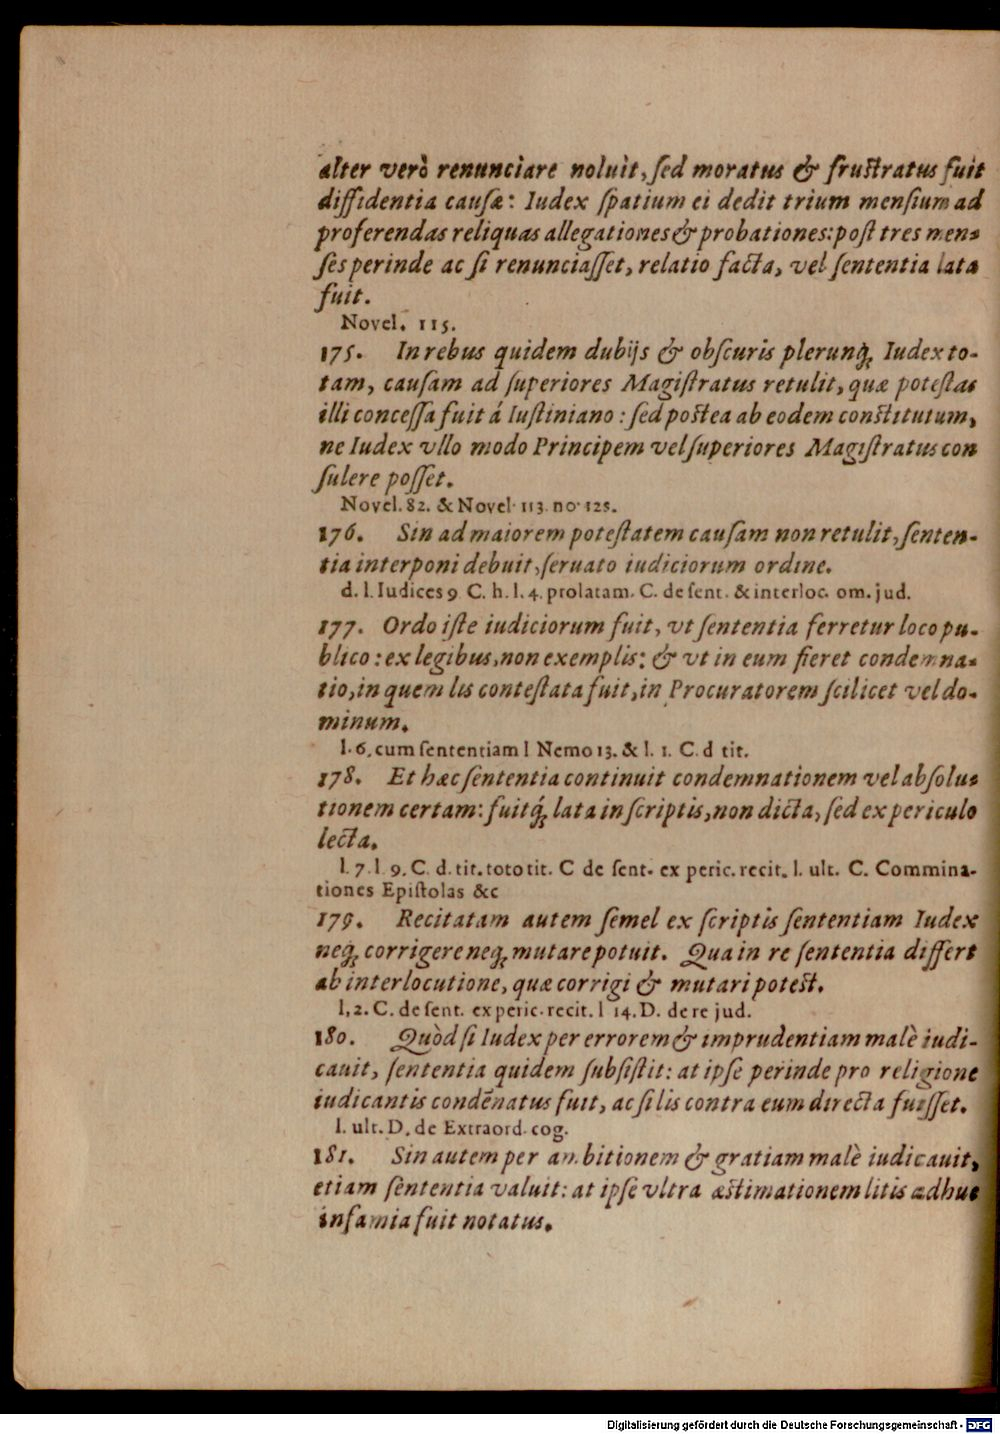 alter verò renunciare noluit, ſed moratus & fruſtratus fuit
diffidentia cauſæ: Iudex ſpatium ei dedit trium menſium ad
proferendas reliquas allegationes & probationes: poſt tres men-
ſes perinde ac ſi renunciaſſet, relatio facta, vel ſententia lata
fuit.
Novel. 115.
175. In rebus quidem dubijs & obſcuris plerunq́; Iudex to-
tam, cauſam ad ſuperiores Magiſtratus retulit, quæ poteſtas
illi conceſſa fuit á Iuſtiniano: ſed poſtea ab eodem conſtitutum,
ne Iudex vllo modo Principem vel ſuperiores Magiſtratus con
ſulere poſſet.
Novel. 82. & Novel. 113. no. 125.
176. Sin ad maiorem poteſtatem cauſam non retulit, ſenten-
tia interponi debuit, ſeruato iudiciorum ordine.
d. l. Iudices 9 C. h. l. 4. prolatam. C. de ſent. & interloc. om. jud.
177. Ordo iſte iudiciorum fuit, vt ſententia ferretur loco pu-
blico: ex legibus, non exemplis: & vt in eum fieret condemna-
tio, in quem lis conteſtata fuit, in Procuratorem ſcilicet vel do-
minum.
l. 6. cum ſententiam l Nemo 13. & l. 1. C. d tit.
178. Et hæc ſententia continuit condemnationem vel abſolu-
tionem certam: fuitq́; lata in ſcriptis, non dicta, ſed ex periculo
lecta.
l. 7. l 9. C. d. tit. toto tit. C de ſent. ex peric. recit. l. ult. C. Commina-
tiones Epiſtolas &c
179. Recitatam autem ſemel ex ſcriptis ſententiam Iudex
neq; corrigere neq; mutare potuit. Qua in re ſententia differt
ab interlocutione, quæ corrigi & mutari poteſt.
l, 2. C. de ſent. ex peric. recit. l 14. D. de re jud.
180. Quòd ſi Iudex per errorem & imprudentiam malè iudi-
cauit, ſententia quidem ſubſiſtit: at ipſe perinde pro religione
iudicantis condēnatus fuit, ac ſi lis contra eum directa fuiſſet.
l. ult. D. de Extraord. cog.
181. Sin autem per ambitionem & gratiam malè iudicauit,
etiam ſententia valuit: at ipſe vltra æſtimationem litis adhuc
infamia fuit notatus.
Digitalisierung gefördert durch die Deutsche Forschungsgemeinschaft - DFG